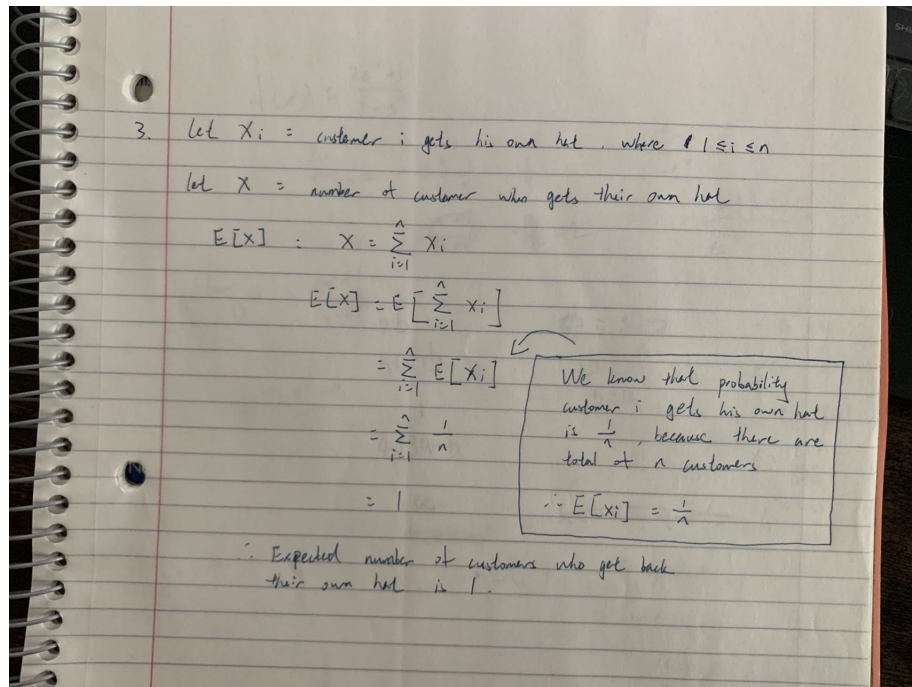 3. let Xi = customer i gets his own hat, where 1 ≤ i ≤ n
let X = number of customer who gets their own hat
E[X] : X = Σ_{i=1}^{n} Xi
E[X] = E[Σ_{i=1}^{n} Xi]
= Σ_{i=1}^{n} E[Xi]
= Σ_{i=1}^{n} 1/n
= 1
We know that probability
customer i gets his own hat
is 1/n, because there are
total of n customers
∴ E[Xi] = 1/n
∴ Expected number of customers who get back
their own hat is 1.